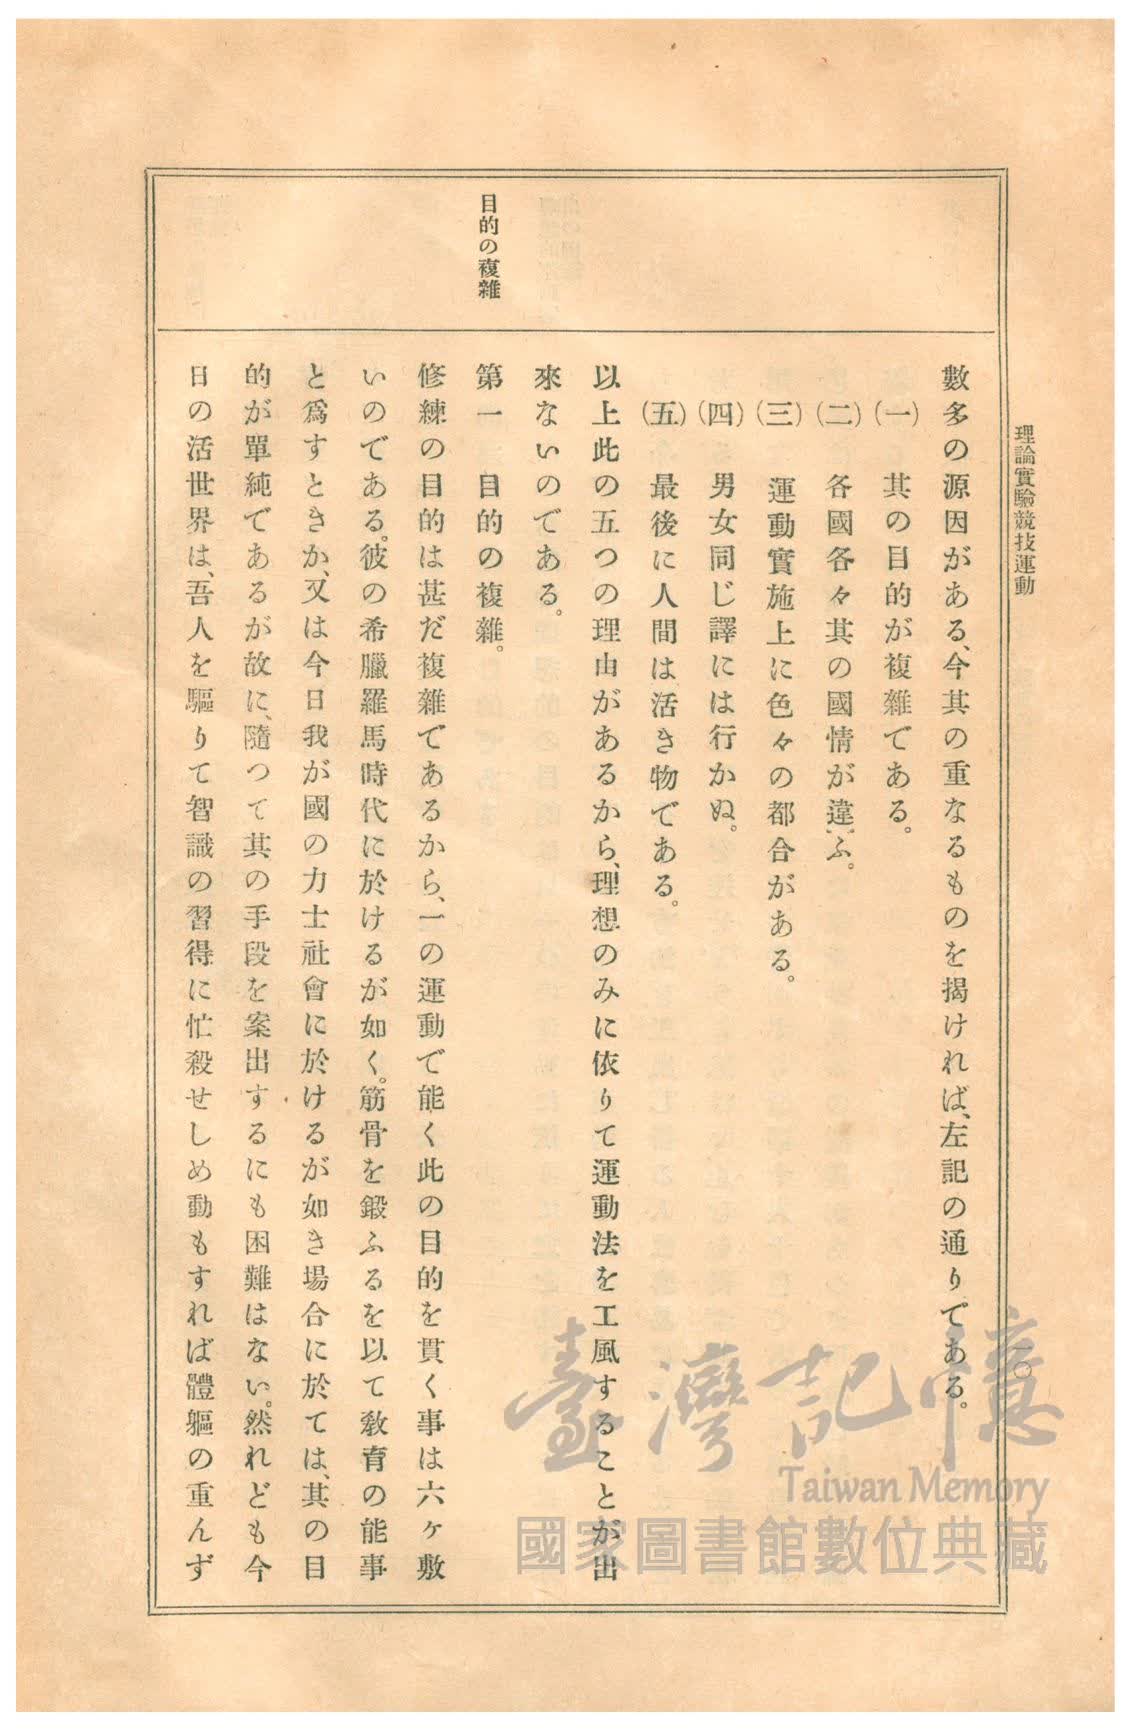 理論實驗競技運動
一〇
數多の源因がある、今其の重なるものを揭ければ、左記の通りである。
(一) 其の目的が複雜である。
(二) 各國各々其の國情が違ふ。
(三) 運動實施上に色々の都合がある。
(四) 男女同じ譯には行かぬ。
(五) 最後に人間は活き物である。
以上此の五つの理由があるから、理想のみに依りて運動法を工風することが出
來ないのである。
目的の複雜
第一 目的の複雜。
修練の目的は甚だ複雜であるから、一の運動で能く此の目的を貫く事は六ヶ敷
いのである。彼の希臘羅馬時代に於けるが如く。筋骨を鍛ふるを以て敎育の能事
と爲すときか、又は今日我が國の力士社會に於けるが如き場合に於ては、其の目
的が單純であるが故に、隨つて其の手段を案出するにも困難はない。然れども今
日の活世界は、吾人を驅りて智識の習得に忙殺せしめ動もすれば體軀の重んず
臺灣記憶
Taiwan Memory
國家圖書館數位典藏